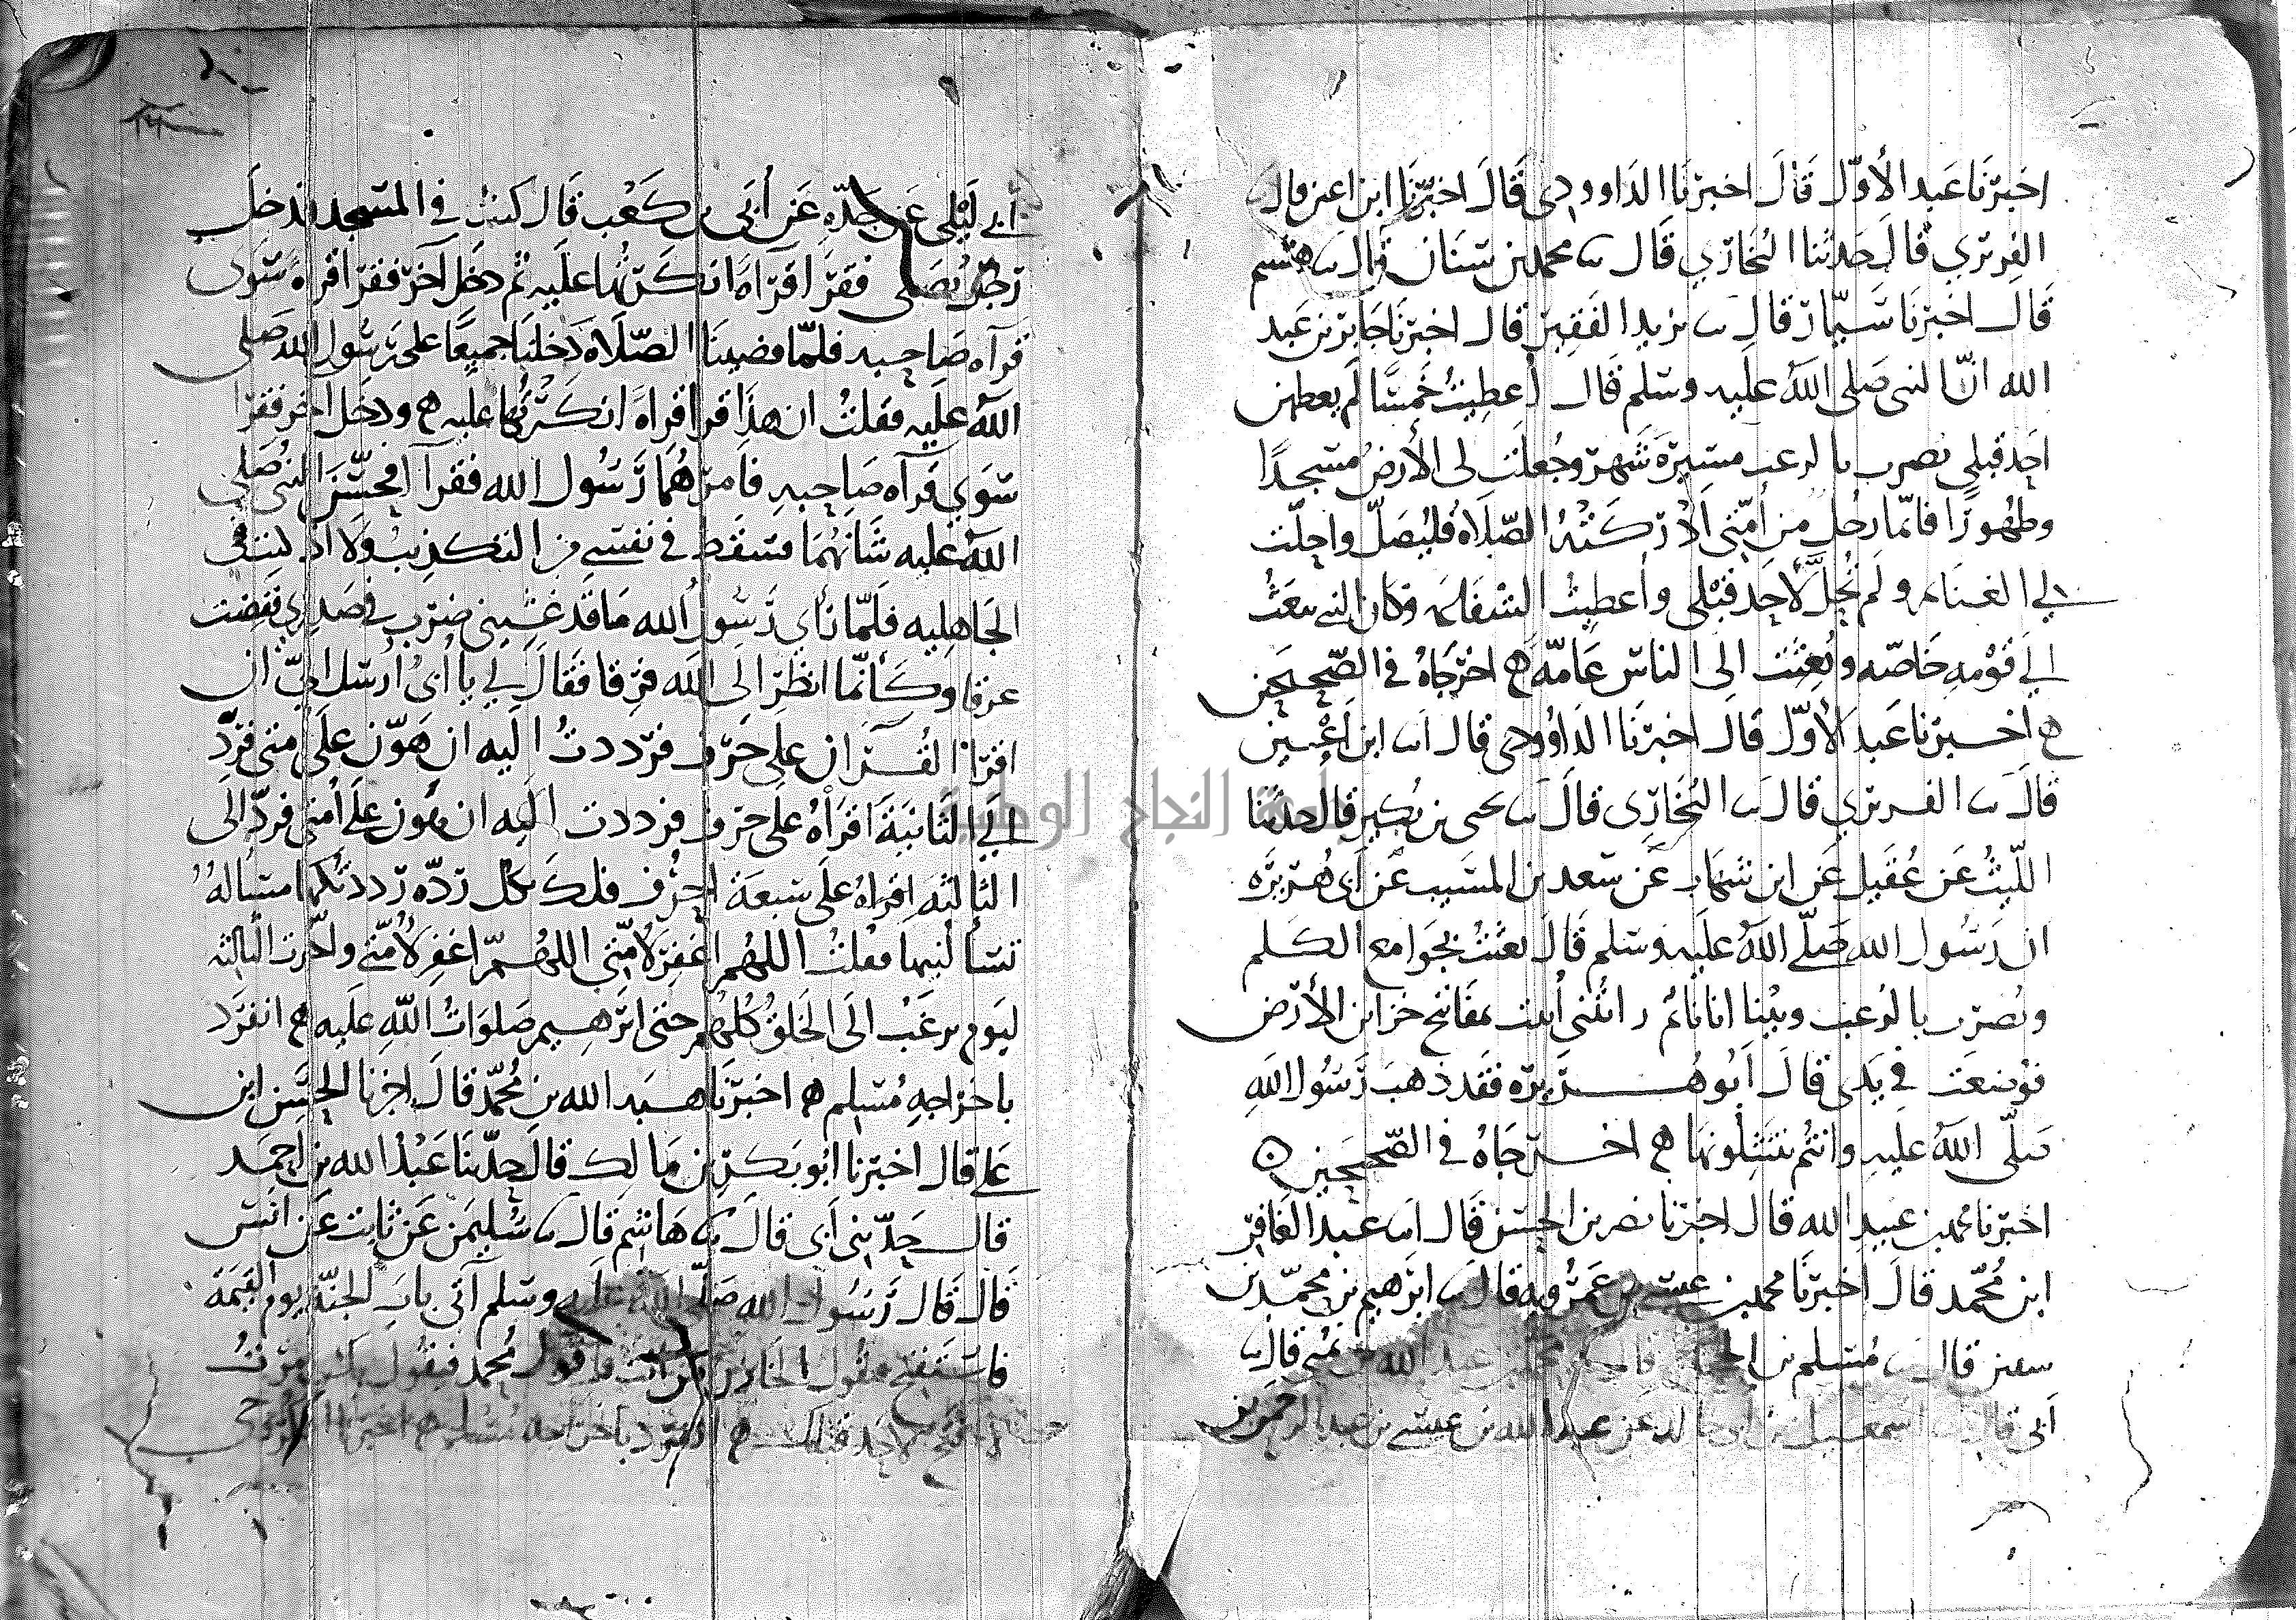 اخبرنا عبد الأول قال اخبرنا الداوودي قال اخبرنا ابن اعين قال
الفربري قال حدثنا البخاري قال ثنا محمد بن سنان قال ثنا هشيم
قال اخبرنا سيار قال ثنا يزيد الفقير قال اخبرنا جابر بن عبد
الله ان النبي صلى الله عليه وسلم قال أعطيت خمسًا لم يعطهن
احد قبلي نصرت بالرعب مسيرة شهر وجعلت لي الأرض مسجدًا
وطهورًا فايما رجل من أمتي أدركته الصلاة فليصل واحلت
لي الغنايم ولم تحل لأحد قبلي وأعطيت الشفاعة وكان النبي يبعث
الي قومه خاصه وبعثت الى الناس عامه ه اخرجاه في الصحيحين
ه أخبرنا عبد الأول قال اخبرنا الداوودي قال انا ابن اعين
قال ثنا الفربري قال ثنا البخاري قال ثنا يحيى بن بكير قال حدثنا
الليث عن عقيل عن ابن شهاب عن سعد بن المسيب عن أبي هريره
ان رسول الله صلى الله عليه وسلم قال بعثت بجوامع الكلم
ونصرت بالرعب وبينا انا نائم رائتني أتيت بمفاتيح خزاين الأرض
فوضعت في يدي قال أبو هريره فقد ذهب رسول الله
صلى الله عليه وانتم تنتثلونها ه اخرجاه في الصحيحين ه
اخبرنا محمد بن عبيد الله قال اخبرنا نصر بن الحسن قال انا عبد الغافر
ابن محمد قال اخبرنا محمد بن عيسى بن عمرويه قال ثنا ابرهيم بن محمد بن
سفين قال ثنا مسلم بن الحجاج قال محمد بن عبد الله بن نمير قال ثنا
أبي قال ثنا اسمعيل بن ابي خالد عن عبد الله بن عيسى بن عبد الرحمن بن
أبي ليلى عن جده عن أبي بن كعب قال كنت في المسجد فدخل
رجل يصلي فقرأ قراة انكرتها عليه ثم دخل آخر فقرا قراه سوى
قراه صاحبه فلما قضينا الصلاة دخلنا جميعًا على رسول الله صلى
الله عليه فقلت ان هذا قرا قراة انكرتها عليه ه ودخل اخر فقرا
سوى قراه صاحبه فامرهما رسول الله فقرآ فحسن النبي صلى
الله عليه شانهما فسقط في نفسي من التكذيب ولا اذ كنت في
الجاهليه فلما رأى رسول الله ما قد غشيني ضرب في صدري ففضت
عرقا وكأنما انظر الى الله فرقا فقال لي يا أبي أرسل الي ان
اقرا القرآن على حرف فرددت اليه ان هون على امتي فرد
الي الثانية اقرأه على حرف فرددت اليه ان هون على أمتي فرد الى
الثالثه اقراه على سبعة احرف فلك بكل رده رددتكها مسألة
تسألنيها فقلت اللهم اغفر لأمتي اللهم اغفر لأمتي واخرت الثالثه
ليوم يرغب الى الخلق كلهم حتى ابرهيم صلوات الله عليه ه انفرد
باخراجه مسلم ه اخبرنا هبه الله بن محمد قال اخبرنا الحسن ابن
علي قال اخبرنا ابو بكر بن مالك قال حدثنا عبد الله بن احمد
قال حدثني أبي قال ثنا هاشم قال ثنا سليمن عن ثابت عن انس
قال قال رسول الله صلى الله عليه وسلم آتي باب الجنة يوم القيمة
فاستفتح فيقول الخازن من انت فاقول محمد فيقول بك امرت
ان لا افتح لاحد قبلك ه انفرد باخراجه مسلم ه اخبرنا الكروخي
جامعة النجاح الوطنية